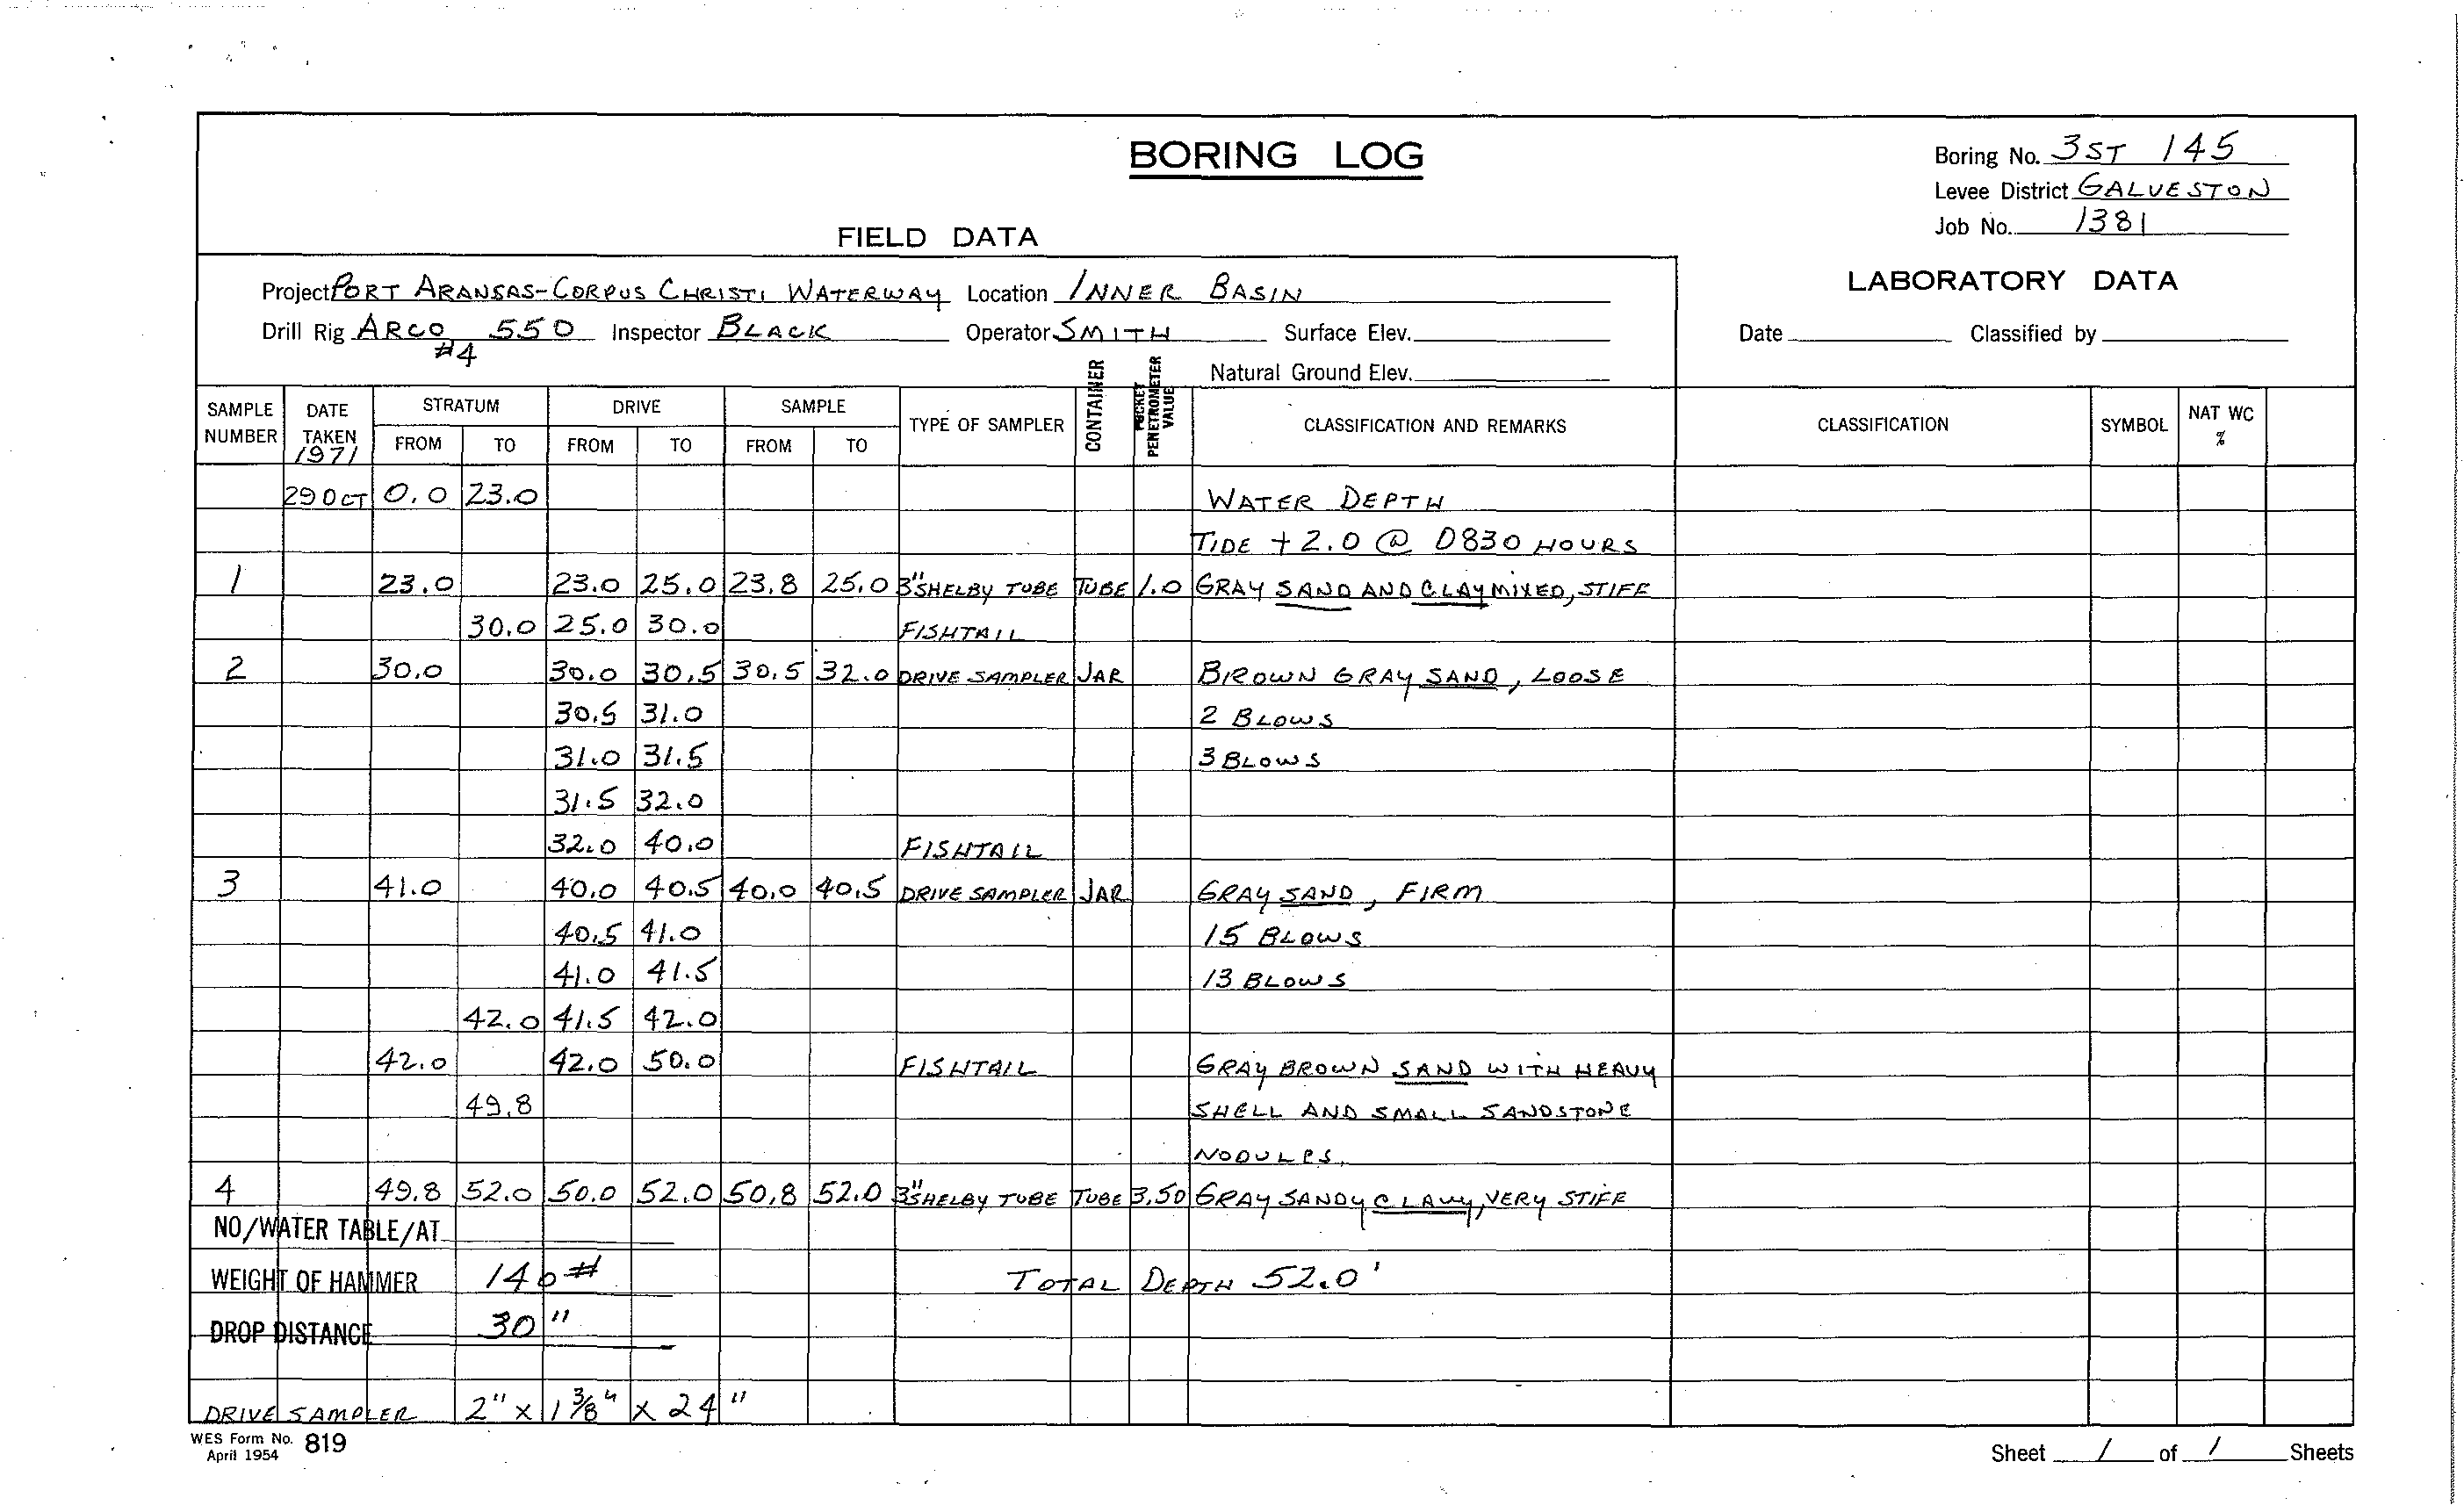 BORING LOG
Boring No. 3ST 145
Levee District GALVESTON
Job No. 1381
FIELD DATA
LABORATORY DATA
Project PORT ARANSAS-CORPUS CHRISTI WATERWAY Location INNER BASIN
Drill Rig ARCO 550 Inspector BLACK Operator SMITH Surface Elev.
#4
Date Classified by
Natural Ground Elev.
SAMPLE NUMBER DATE TAKEN 1971 STRATUM FROM TO DRIVE FROM TO SAMPLE FROM TO TYPE OF SAMPLER CONTAINER POCKET PENETROMETER VALUE CLASSIFICATION AND REMARKS CLASSIFICATION SYMBOL NAT WC %
29 OCT 0.0 23.0 WATER DEPTH
TIDE +2.0 @ 0830 HOURS
1 23.0 23.0 25.0 23.8 25.0 3" SHELBY TUBE TUBE 1.0 GRAY SAND AND CLAY MIXED, STIFF
30.0 25.0 30.0 FISHTAIL
2 30.0 30.0 30.5 30.5 32.0 DRIVE SAMPLER JAR BROWN GRAY SAND, LOOSE
30.5 31.0 2 BLOWS
31.0 31.5 3 BLOWS
31.5 32.0
32.0 40.0 FISHTAIL
3 41.0 40.0 40.5 40.0 40.5 DRIVE SAMPLER JAR GRAY SAND, FIRM
40.5 41.0 15 BLOWS
41.0 41.5 13 BLOWS
42.0 41.5 42.0
42.0 42.0 50.0 FISHTAIL GRAY BROWN SAND WITH HEAVY
49.8 SHELL AND SMALL SANDSTONE
NODULES.
4 49.8 52.0 50.0 52.0 50.8 52.0 3" SHELBY TUBE TUBE 3.50 GRAY SANDY CLAY, VERY STIFF
NO/WATER TABLE/AT
WEIGHT OF HAMMER 140# TOTAL DEPTH 52.0'
DROP DISTANCE 30"
DRIVE SAMPLER 2" x 1 3/8" x 24"
WES Form No. 819
April 1954
Sheet 1 of 1 Sheets